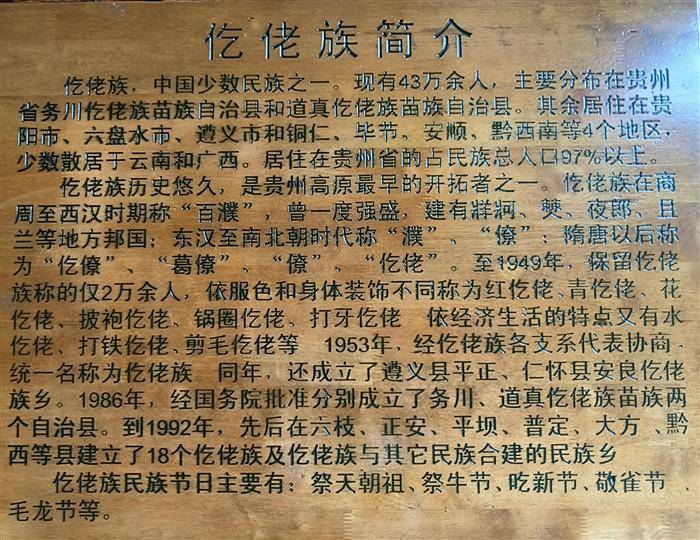 仡佬族简介
仡佬族，中国少数民族之一。现有43万余人，主要分布在贵州
省务川仡佬族苗族自治县和道真仡佬族苗族自治县。其余居住在贵
阳市、六盘水市、遵义市和铜仁、毕节，安顺，黔西南等4个地区，
少数散居于云南和广西。居住在贵州省的占民族总人口97%以上。
仡佬族历史悠久，是贵州高原最早的开拓者之一。仡佬族在商
周至西汉时期称“百濮”，曾一度强盛，建有牂牁、僰、夜郎、且
兰等地方邦国；东汉至南北朝时代称“濮”、“僚”；隋唐以后称
为“仡僚”、“葛僚”、“僚”、“仡佬”。至1949年，保留仡佬
族称的仅2万余人，依服色和身体装饰不同称为红仡佬、青仡佬、花
仡佬、披袍仡佬、锅圈仡佬、打牙仡佬 依经济生活的特点又有水
仡佬、打铁仡佬、剪毛仡佬等 1953年，经仡佬族各支系代表协商，
统一名称为仡佬族 同年，还成立了遵义县平正、仁怀县安良仡佬
族乡。1986年，经国务院批准分别成立了务川、道真仡佬族苗族两
个自治县。到1992年，先后在六枝、正安、平坝、普定、大方、黔
西等县建立了18个仡佬族及仡佬族与其它民族合建的民族乡
仡佬族民族节日主要有：祭天朝祖、祭牛节、吃新节、敬雀节、
毛龙节等。